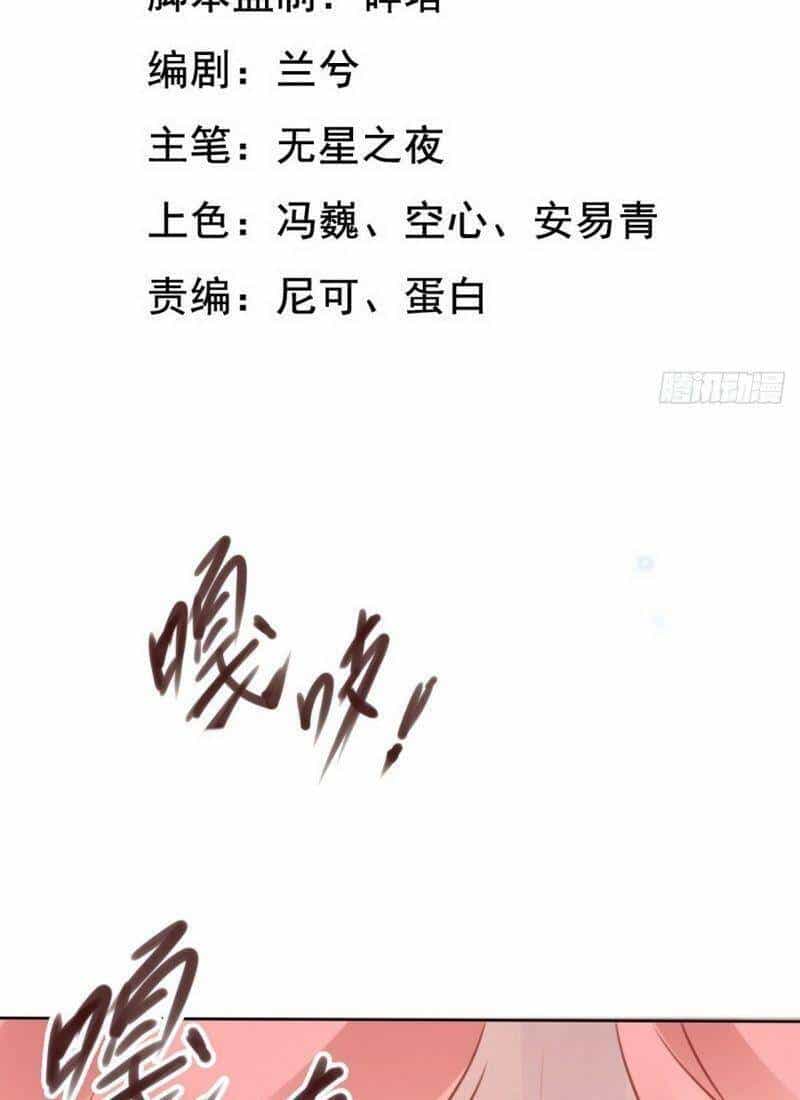 编剧：兰兮
主笔：无星之夜
上色：冯巍、空心、安易青
责编：尼可、蛋白
腾讯动漫
嘎吱！
嘎